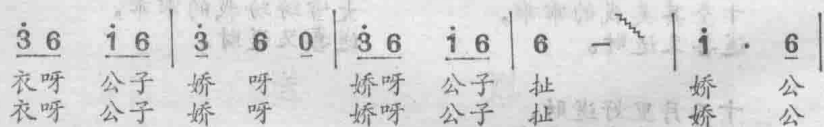 3̇ 6 i̇ 6 | 3̇ 6 0 | 3̇ 6 i̇ 6 | 6 – | i̇ · 6 |
衣呀 公子 娇 呀 娇呀 公子 扯 娇 公
衣呀 公子 娇 呀 娇呀 公子 扯 娇 公